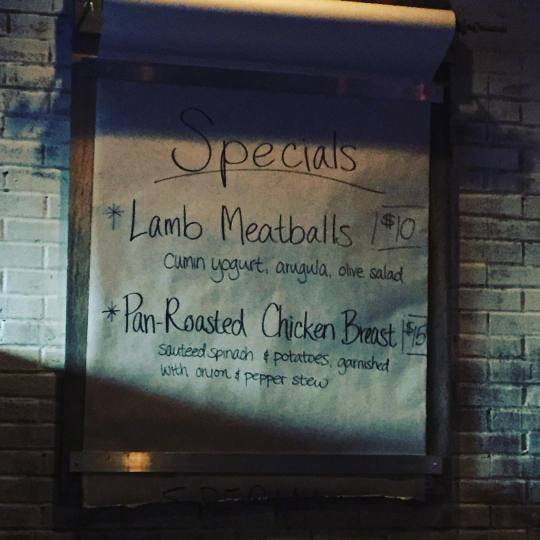 Specials
* Lamb Meatballs $10
cumin yogurt, arugula, olive salad
* Pan-Roasted Chicken Breast $15
sauteed spinach & potatoes, garnished
with onion & pepper stew